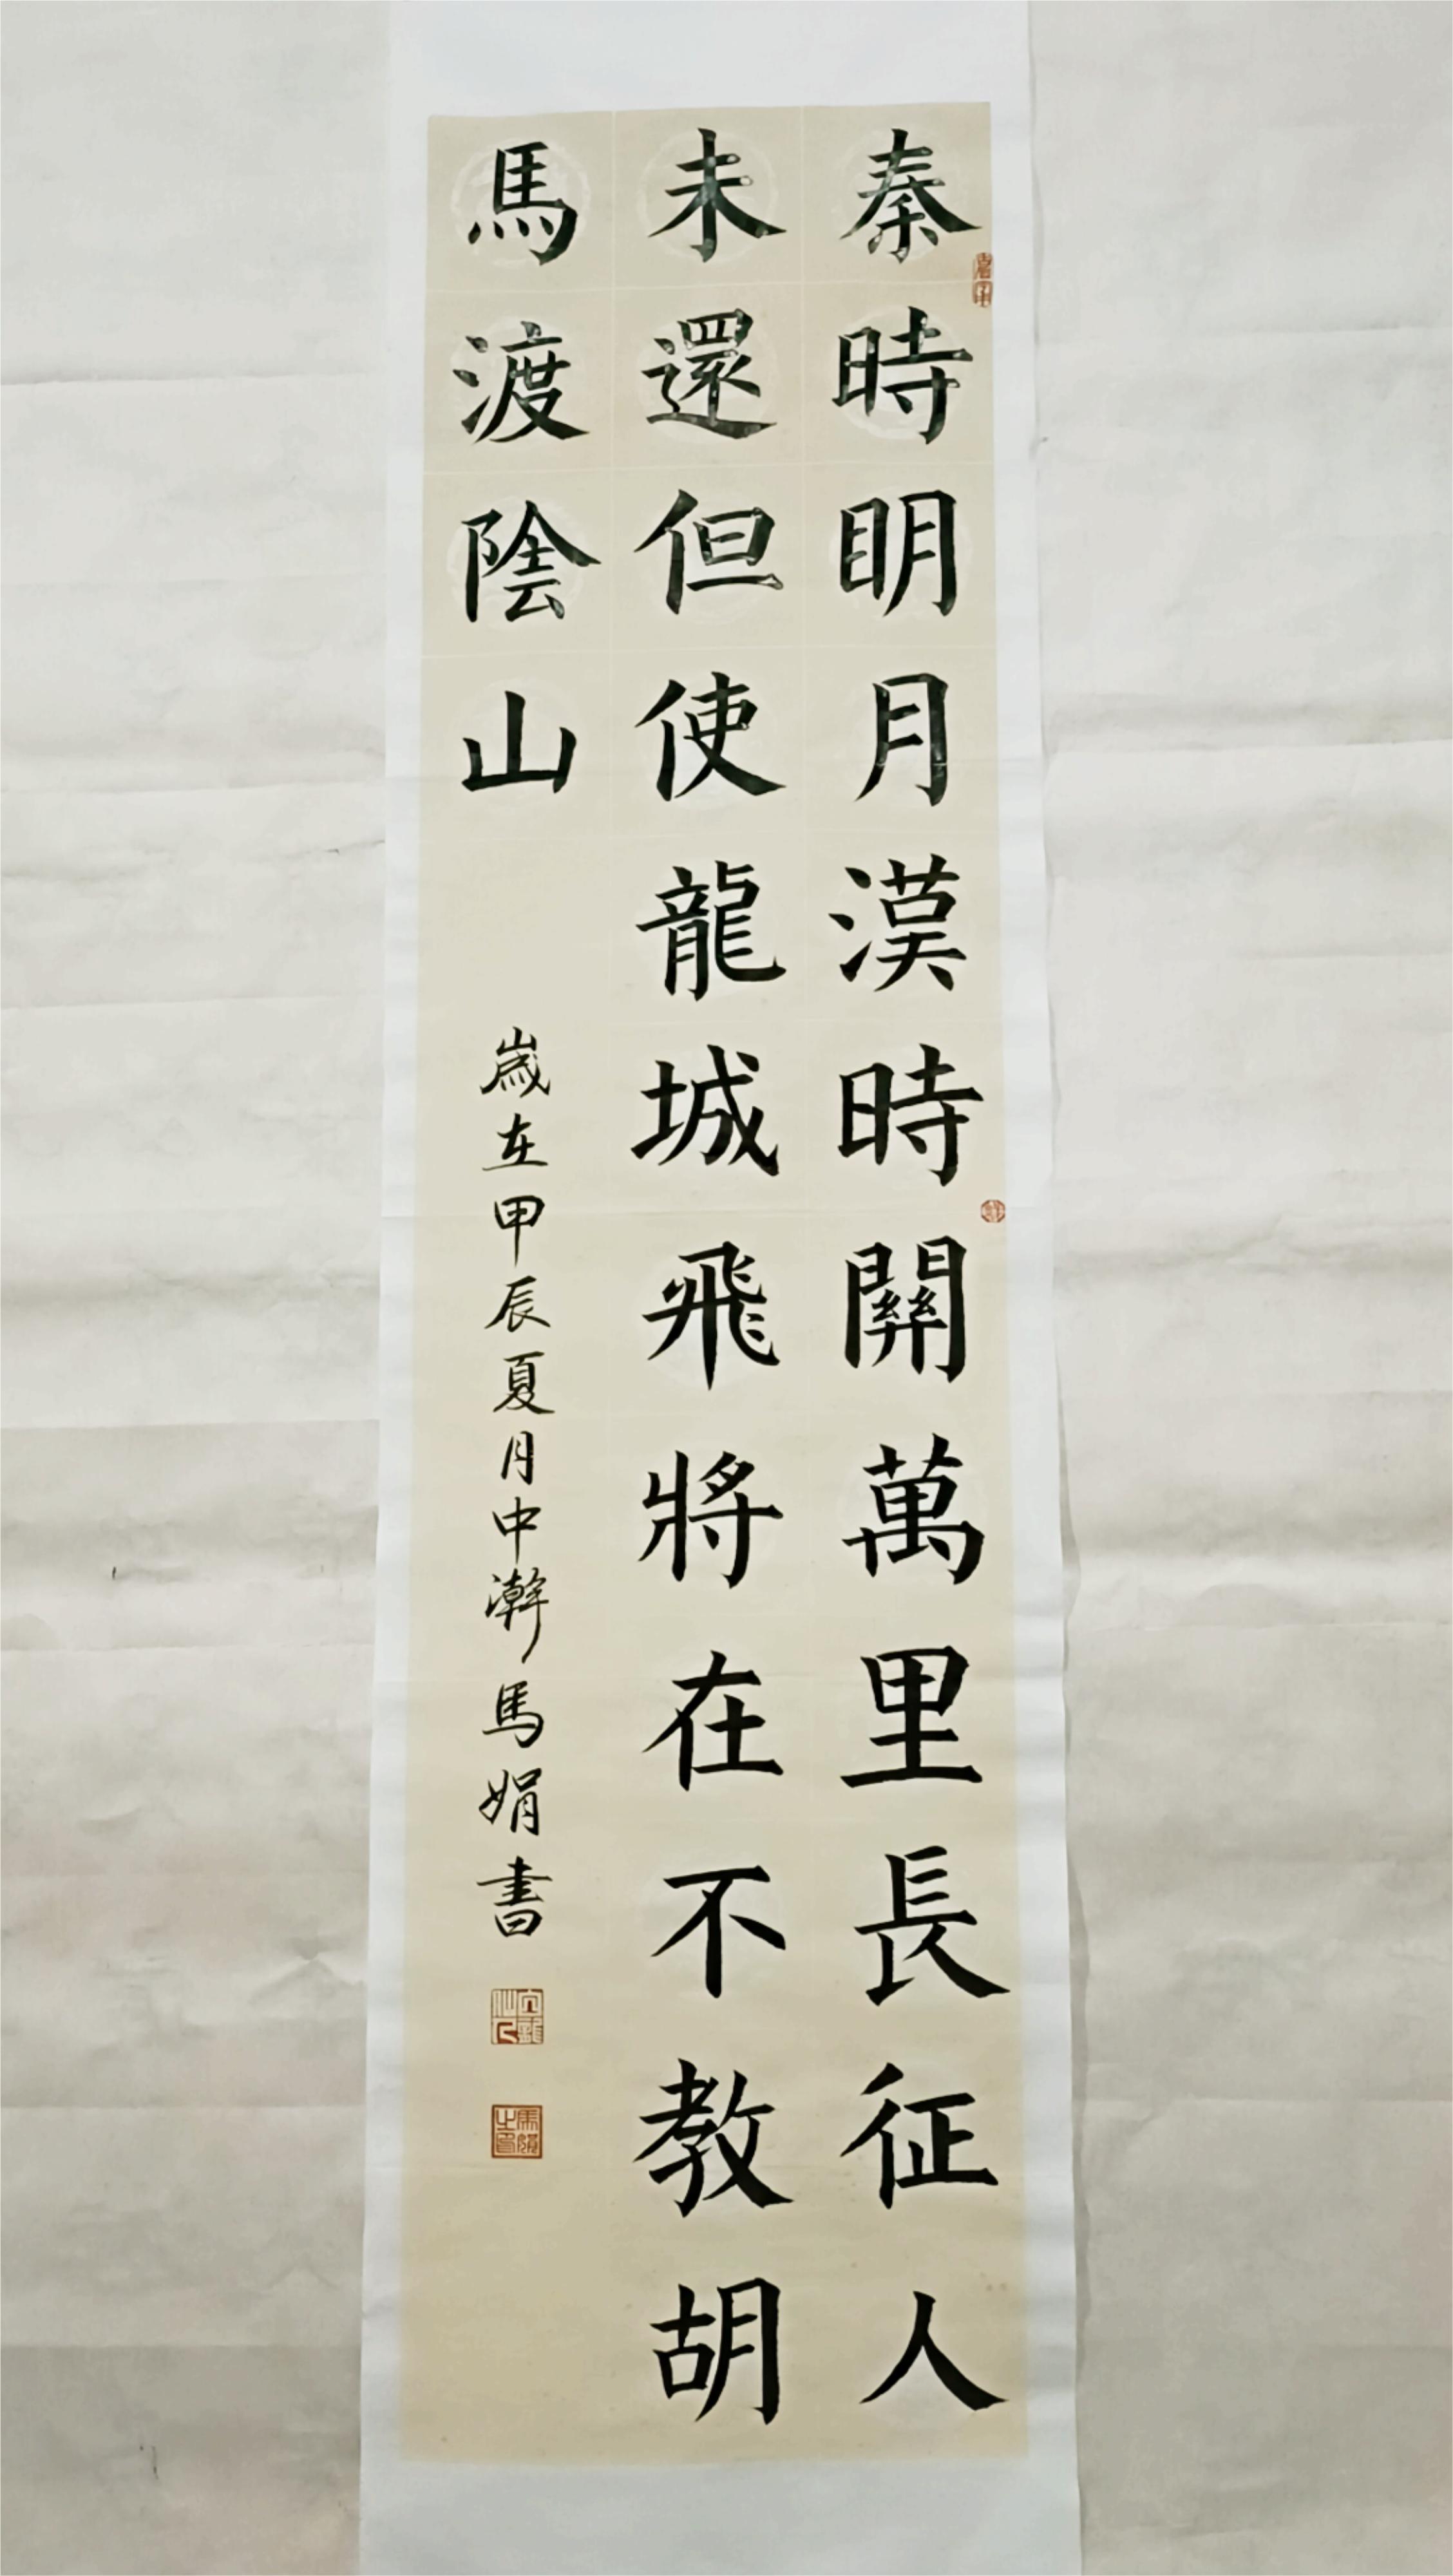 秦時明月漢時關萬里長征人
未還但使龍城飛將在不教胡
馬渡陰山
歲在甲辰夏月中澣馬娟書